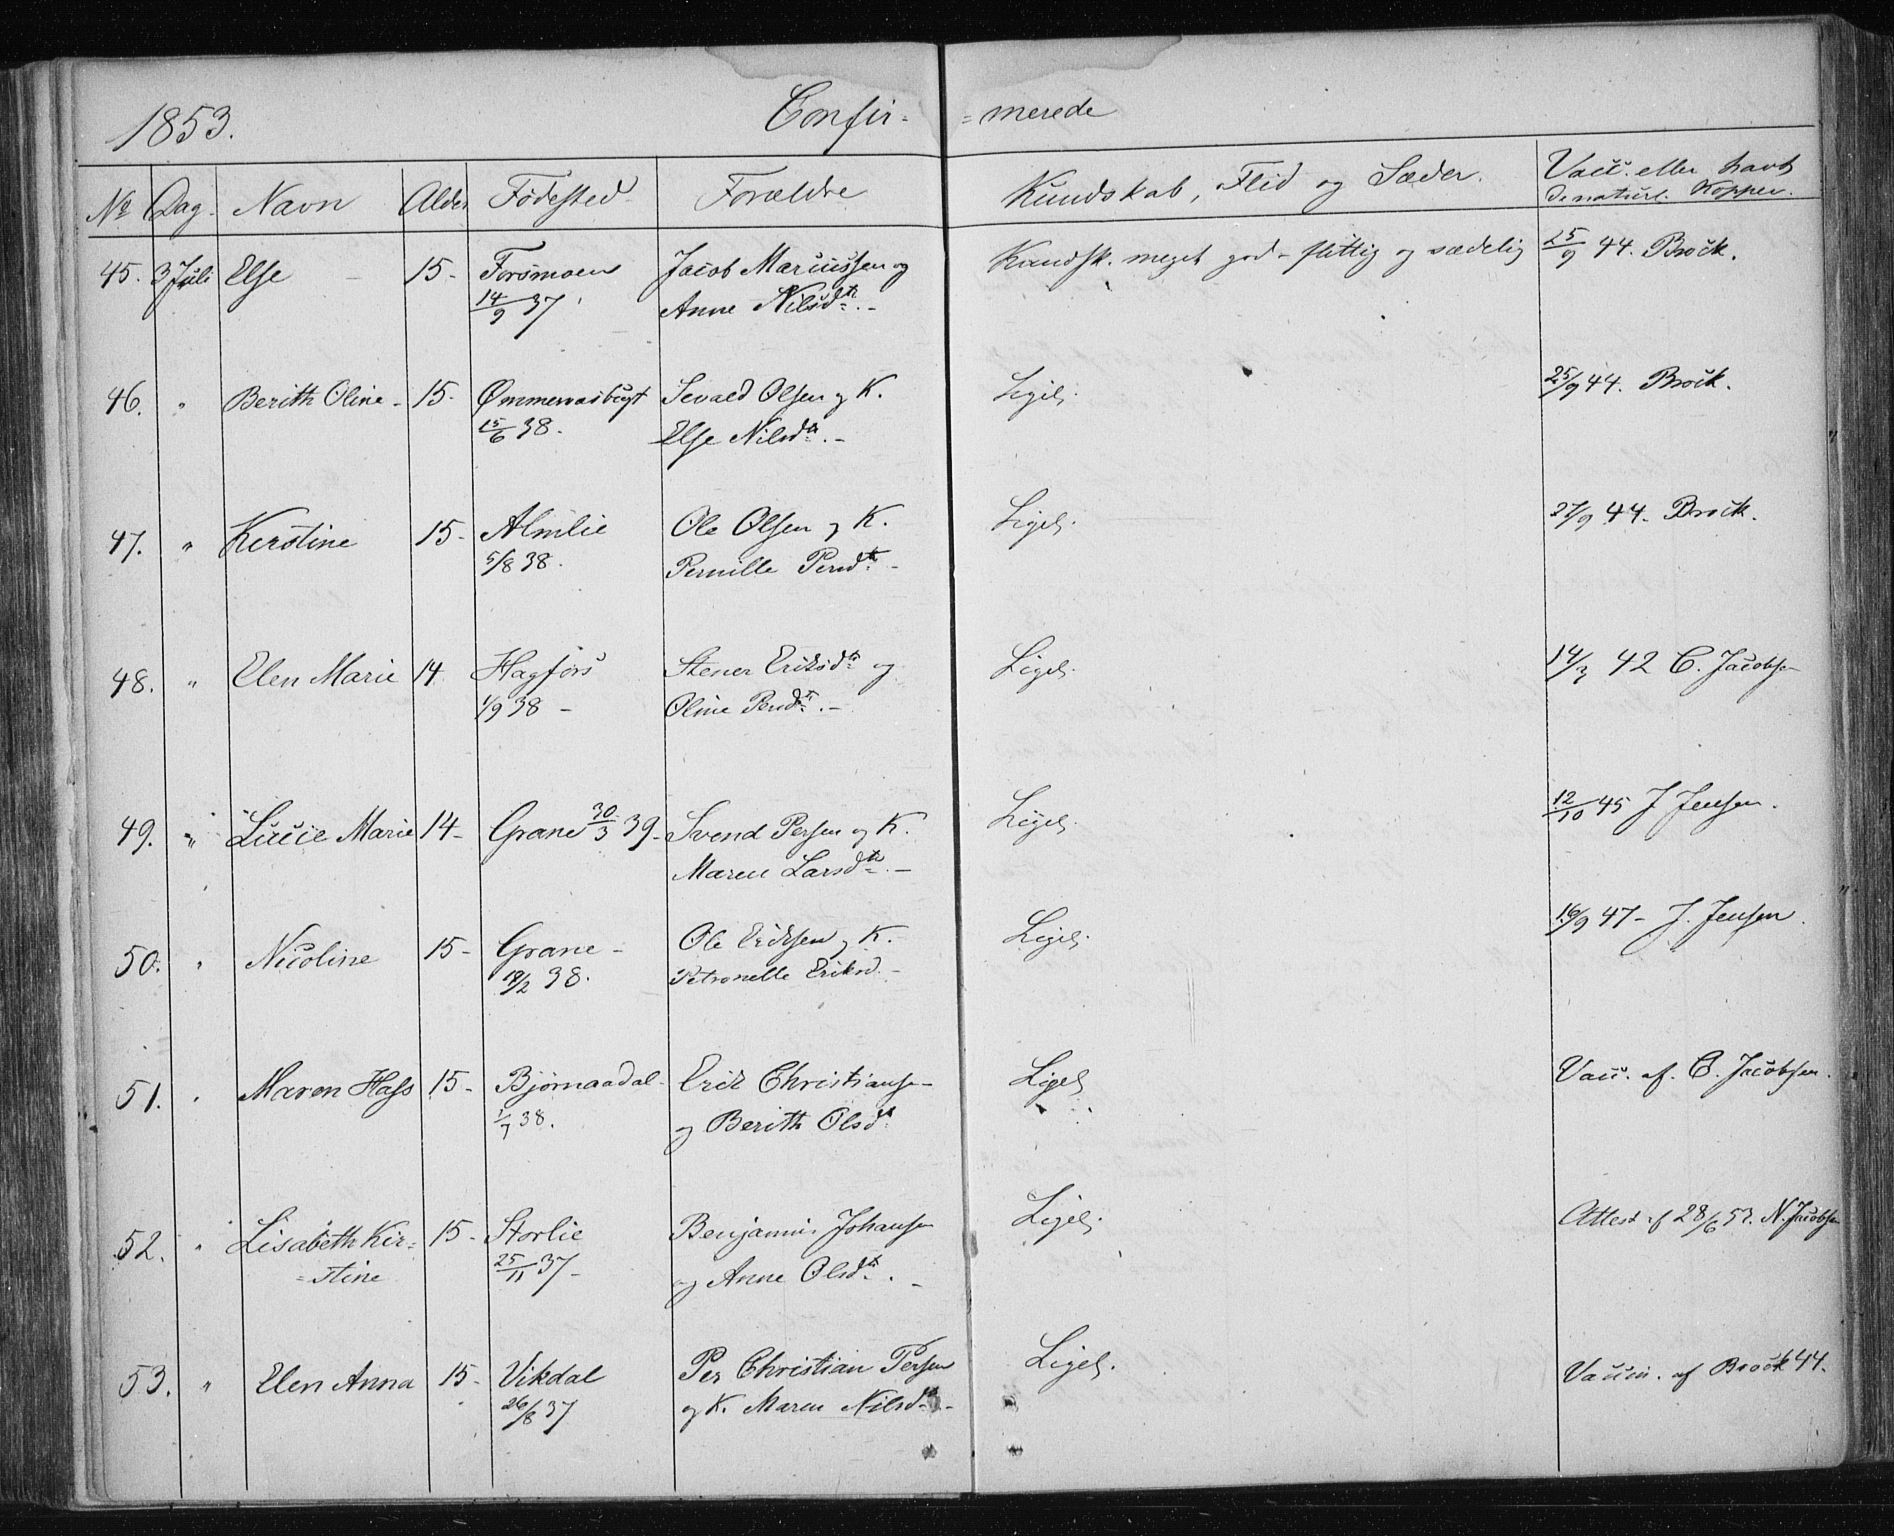 1853. Confir- =merede
No Dag. Navn Alder Fødested Forældre Kundskab, Flid og Sæder. Vacc. eller havt
de naturl. Kopper.
45. 3 Juli Else - 15- Forsmoen Jacob Marcussen og Kundsk. meget god - flittig og sædelig 25/9 44. Brock.
14/9 37 Anne Nilsdtr. -
46. " Berith Oline - 15- Ømmervasbugt Sevald Olsen og K. Ligel. 25/9 44. Brock.
15/6 38. Else Nilsdtr. -
47. " Kirstine 15- Almlie Ole Olsen og K. Ligel. 27/9 44. Brock.
5/8 38. Pernille Persdtr. -
48. " Elen Marie 14 Hagfors Stener Eriksdtr og Ligel. 14/3 42 C. Jacobsen
1/9 38 - Oline Persdtr. -
49. " Lucie Marie 14- Grane 30/3 39- Svend Persen og K. Ligel. 12/10 45 J Jensen.
Maren Larsdtr. -
50. " Nicoline 15- Grane - Ole Eriksen og K. Ligel. 16/9 47- J. Jensen.
19/2 38. Petronelle Eriksd. -
51. " Maren Hass 15- Bjørnaadal- Erik Christiansen Ligel. Vacc. af. C. Jacobsen.
1/7 38. og Berith Olsdtr
52. " Lisabeth Kir= 15- Storlie Benjamin Johansen Ligel. Attest af 28/6 53. N. Jacobsen
=stine 25/11 37- og Anne Olsdtr. -
53. " Elen Anna 15- Vikdal Per Christian Persen Ligel. Vaccin. af Brock 44.
26/8 37 og K. Maren Nilsdtr. -